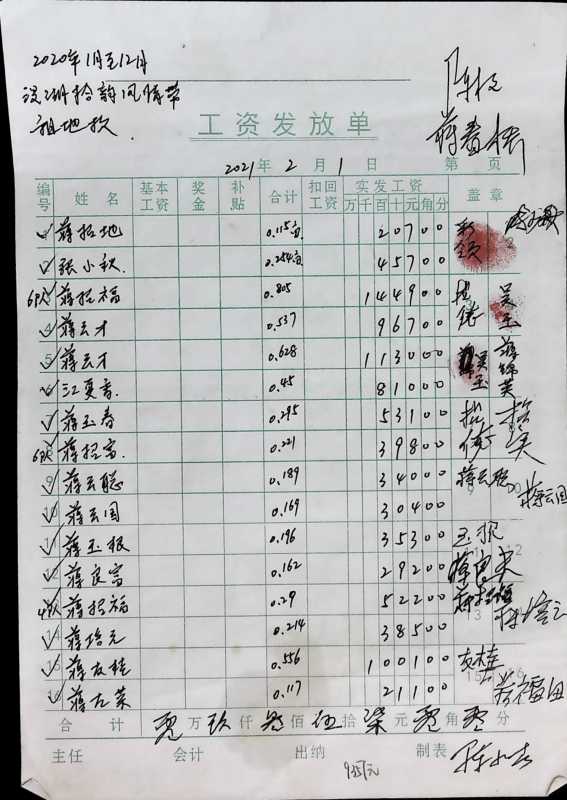 2020年1月至12月
租地款
工资发放单
2021年2月1日 第 页
编号 姓名 基本工资 奖金 补贴 合计 扣回工资 实发工资 盖章
万千百十元角分
蒋招地 0.115亩 20700
2 张小秋. 0.254亩 45700
6队 蒋招福 0.805 144900
4 蒋云才 0.537 96700 吴玉
5 蒋云才 0.628 113000 吴玉 蒋锦芙
6 江夏香. 0.45 81000
7 蒋玉春 0.295 53100
6队 蒋招富 0.221 39800
9 蒋云聪 0.189 34000 蒋云聪
10 蒋云国 0.169 30400 蒋云国
11 蒋玉根 0.196 35300 玉根
12 蒋良富 0.162 29200
蒋招福 0.29 52200
14 蒋培元 0.214 38500
15 蒋友桂 0.556 100100 友桂
蒋左英 0.117 21100
合计 零万玖仟叁佰伍拾柒元零角零分
主任 会计 出纳 制表
9357元